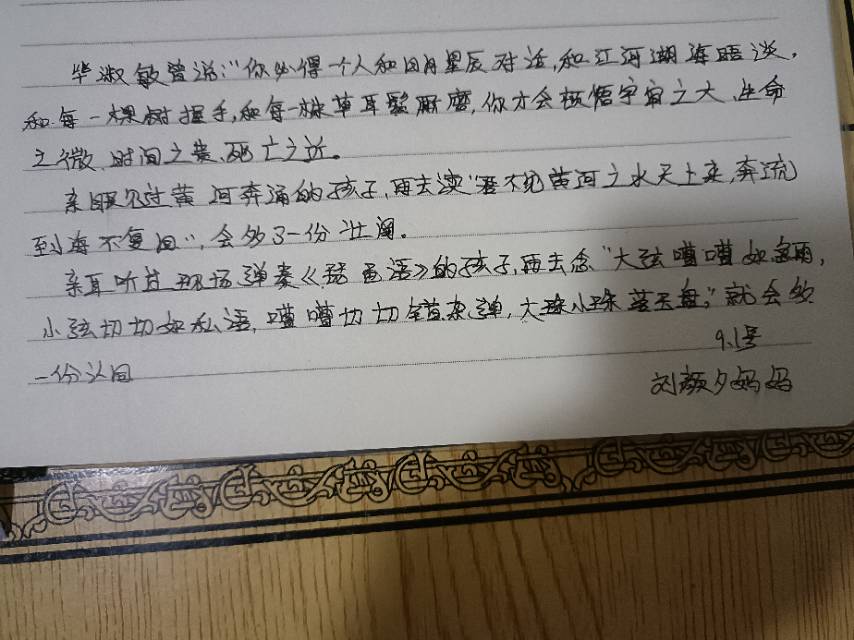 华淑敏曾说:"你必得一个人和日月星辰对话,和江河湖海晤谈,
和每一棵树握手,和每一株草耳鬓厮磨,你才会顿悟宇宙之大、生命
之微、时间之贵、死亡之近。
亲眼见过黄河奔涌的孩子,再去读"君不见黄河之水天上来,奔流
到海不复回",会多了一份壮阔。
亲耳听过现场弹奏《琵琶语》的孩子,再去念"大弦嘈嘈如急雨,
小弦切切如私语,嘈嘈切切错杂弹,大珠小珠落玉盘,"就会多
一份认同
9.1号
刘颜夕妈妈